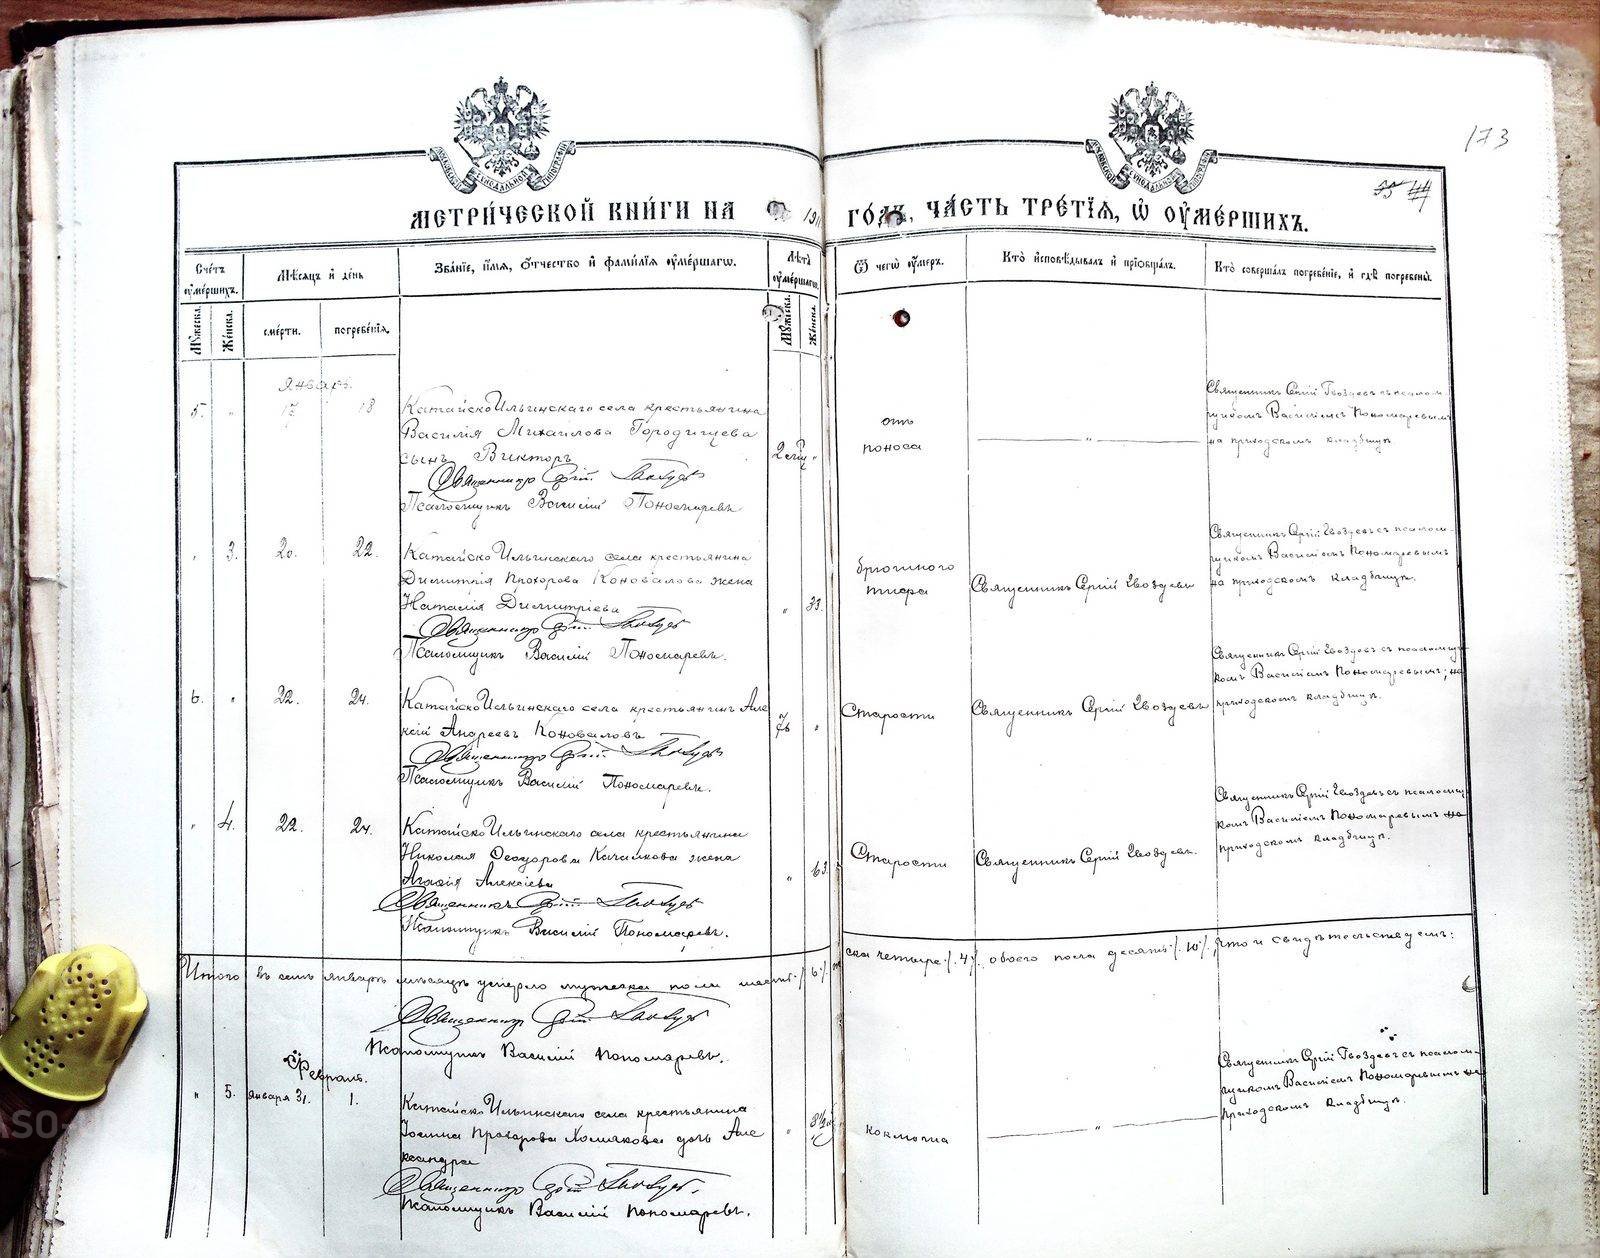 173
МЕТРИ́ЧЕСКОЙ КНИ́ГИ НА 191 ГО́ДЪ, ЧА́СТЬ ТРЕ́ТІЯ, Ѡ҆ ОУ҆МЕ́РШИХЪ.
Сче́тъ оу҆ме́ршихъ.
Мѣ́сяцъ и҆ де́нь
Зва́ніе, и҆́мя, о҆́тчество и҆ фами́лія оу҆ме́ршагѡ.
Лѣ́тъ оу҆ме́ршагѡ.
Ѿ чегѡ̀ оу҆́меръ.
Кто̀ и҆сповѣ́дывалъ и҆ прїѡбща́лъ.
Кто̀ соверша́лъ погребе́ніе, и҆ гдѣ̀ погребены̀.
Мꙋ́жеска.
Же́нска.
сме́рти.
погребе́нія.
Мꙋ́жеска.
Же́нска.
Январь.
5. " 17 18
Катайско Ильинскаго села крестьянина
Василія Михаилова Городищева
сынъ Викторъ
Священникъ Сергій Гвоздевъ
Псаломщикъ Василій Пономаревъ
2 "
отъ
поноса
"
Священникъ Сергій Гвоздевъ съ псалом-
щикомъ Василіемъ Пономаревымъ
на приходскомъ кладбищѣ
" 3. 20. 22.
Катайско Ильинскаго села крестьянина
Димитрія Прохорова Коновалова жена
Наталія Димитріева
Священникъ Сергій Гвоздевъ
Псаломщикъ Василій Пономаревъ.
" 33.
брюшного
тифа
Священникъ Сергій Гвоздевъ
Священникъ Сергій Гвоздевъ съ псалом-
щикомъ Василіемъ Пономаревымъ
на приходскомъ кладбищѣ.
6. " 22. 24.
Катайско Ильинскаго села крестьянинъ Але
ксій Андреевъ Коноваловъ
Священникъ Сергій Гвоздевъ
Псаломщикъ Василій Пономаревъ.
76 "
Старости
Священникъ Сергій Гвоздевъ
Священникъ Сергій Гвоздевъ съ псаломщи-
комъ Василіемъ Пономаревымъ; на
приходскомъ кладбищѣ.
" 4. 22. 24.
Катайско Ильинскаго села крестьянина
Николая Ѳеодорова Качалкова жена
Агафія Алексіева
Священникъ Сергій Гвоздевъ
Псаломщикъ Василій Пономаревъ.
" 63.
Старости
Священникъ Сергій Гвоздевъ.
Священникъ Сергій Гвоздевъ съ псаломщи
комъ Василіемъ Пономаревымъ на
приходскомъ кладбищѣ.
Итого въ семъ январѣ мѣсяцѣ умерло мужеска пола шесть /.6./ жен
ска четыре /.4./, обоего пола десять /.10./, что и свидѣтельствуемъ:
Священникъ Сергій Гвоздевъ
Псаломщикъ Василій Пономаревъ.
Февраль.
" 5. января 31. 1.
Катайско Ильинскаго села крестьянина
Іоанна Прохорова Хомякова дочь Але
ксандра
Священникъ Сергій Гвоздевъ.
Псаломщикъ Василій Пономаревъ.
"
коклюша
"
Священникъ Сергій Гвоздевъ съ псалом-
щикомъ Василіемъ Пономаревымъ на
приходскомъ кладбищѣ.